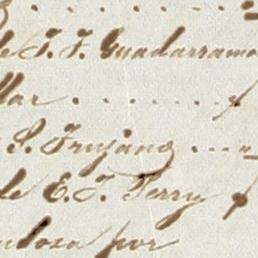 de T. J. Guadarrama
llar
S. Trujano
de E. T. Terry
ndoza por